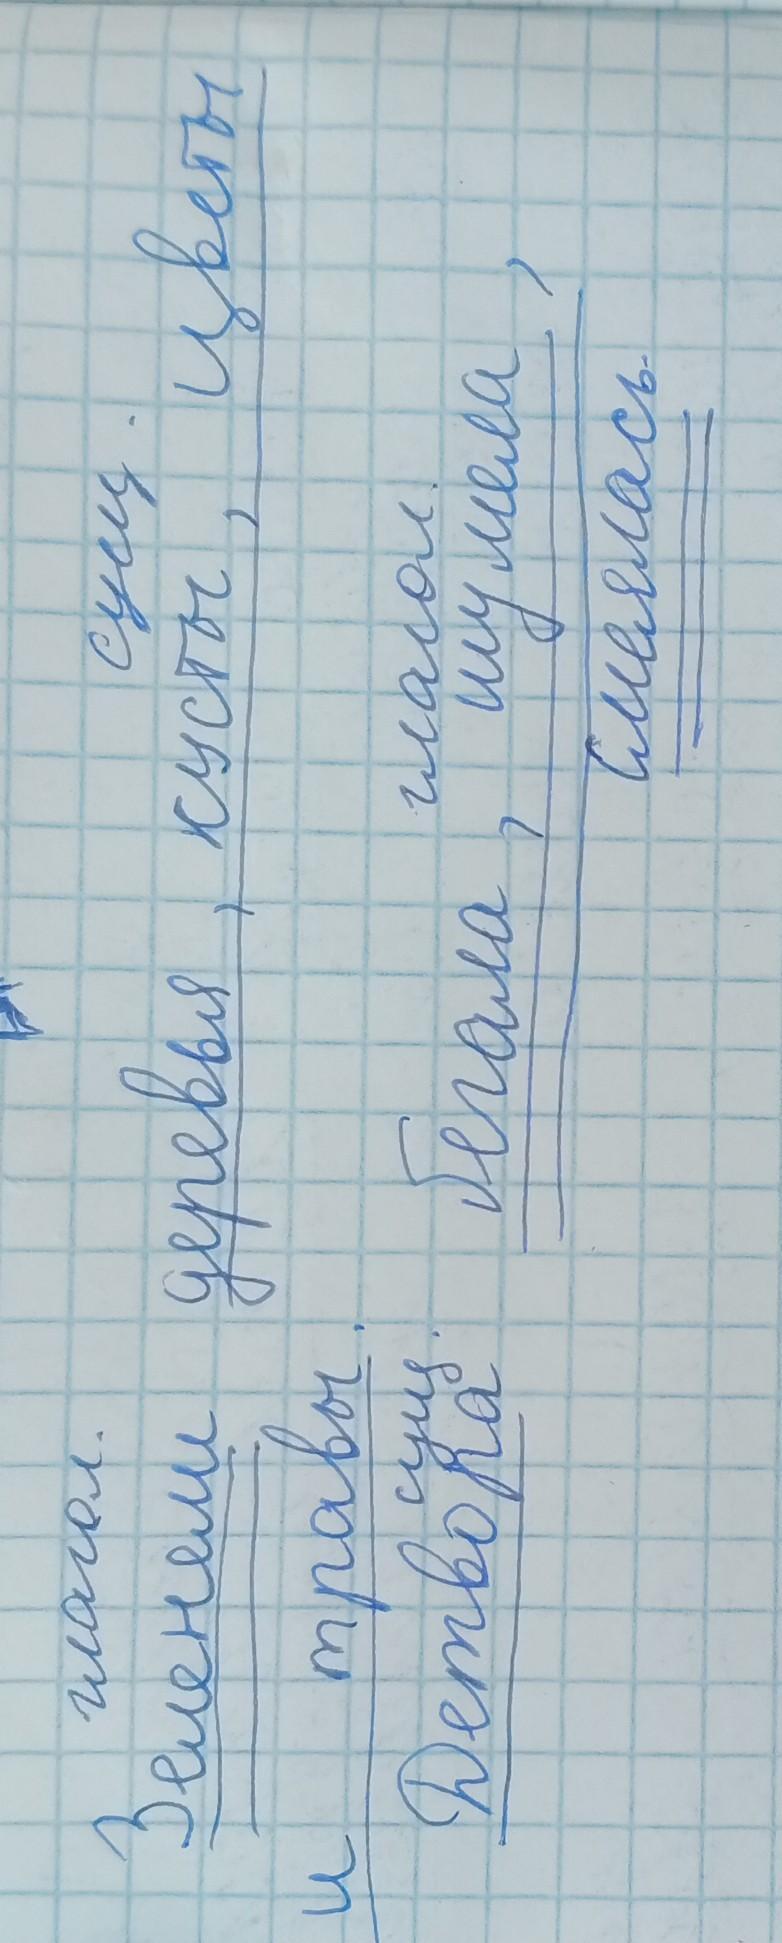 глагол. сущ.
Зеленели деревья, кусты, цветы
и травы.
сущ. глагол.
Детвора бегала, шумела,
смеялась.